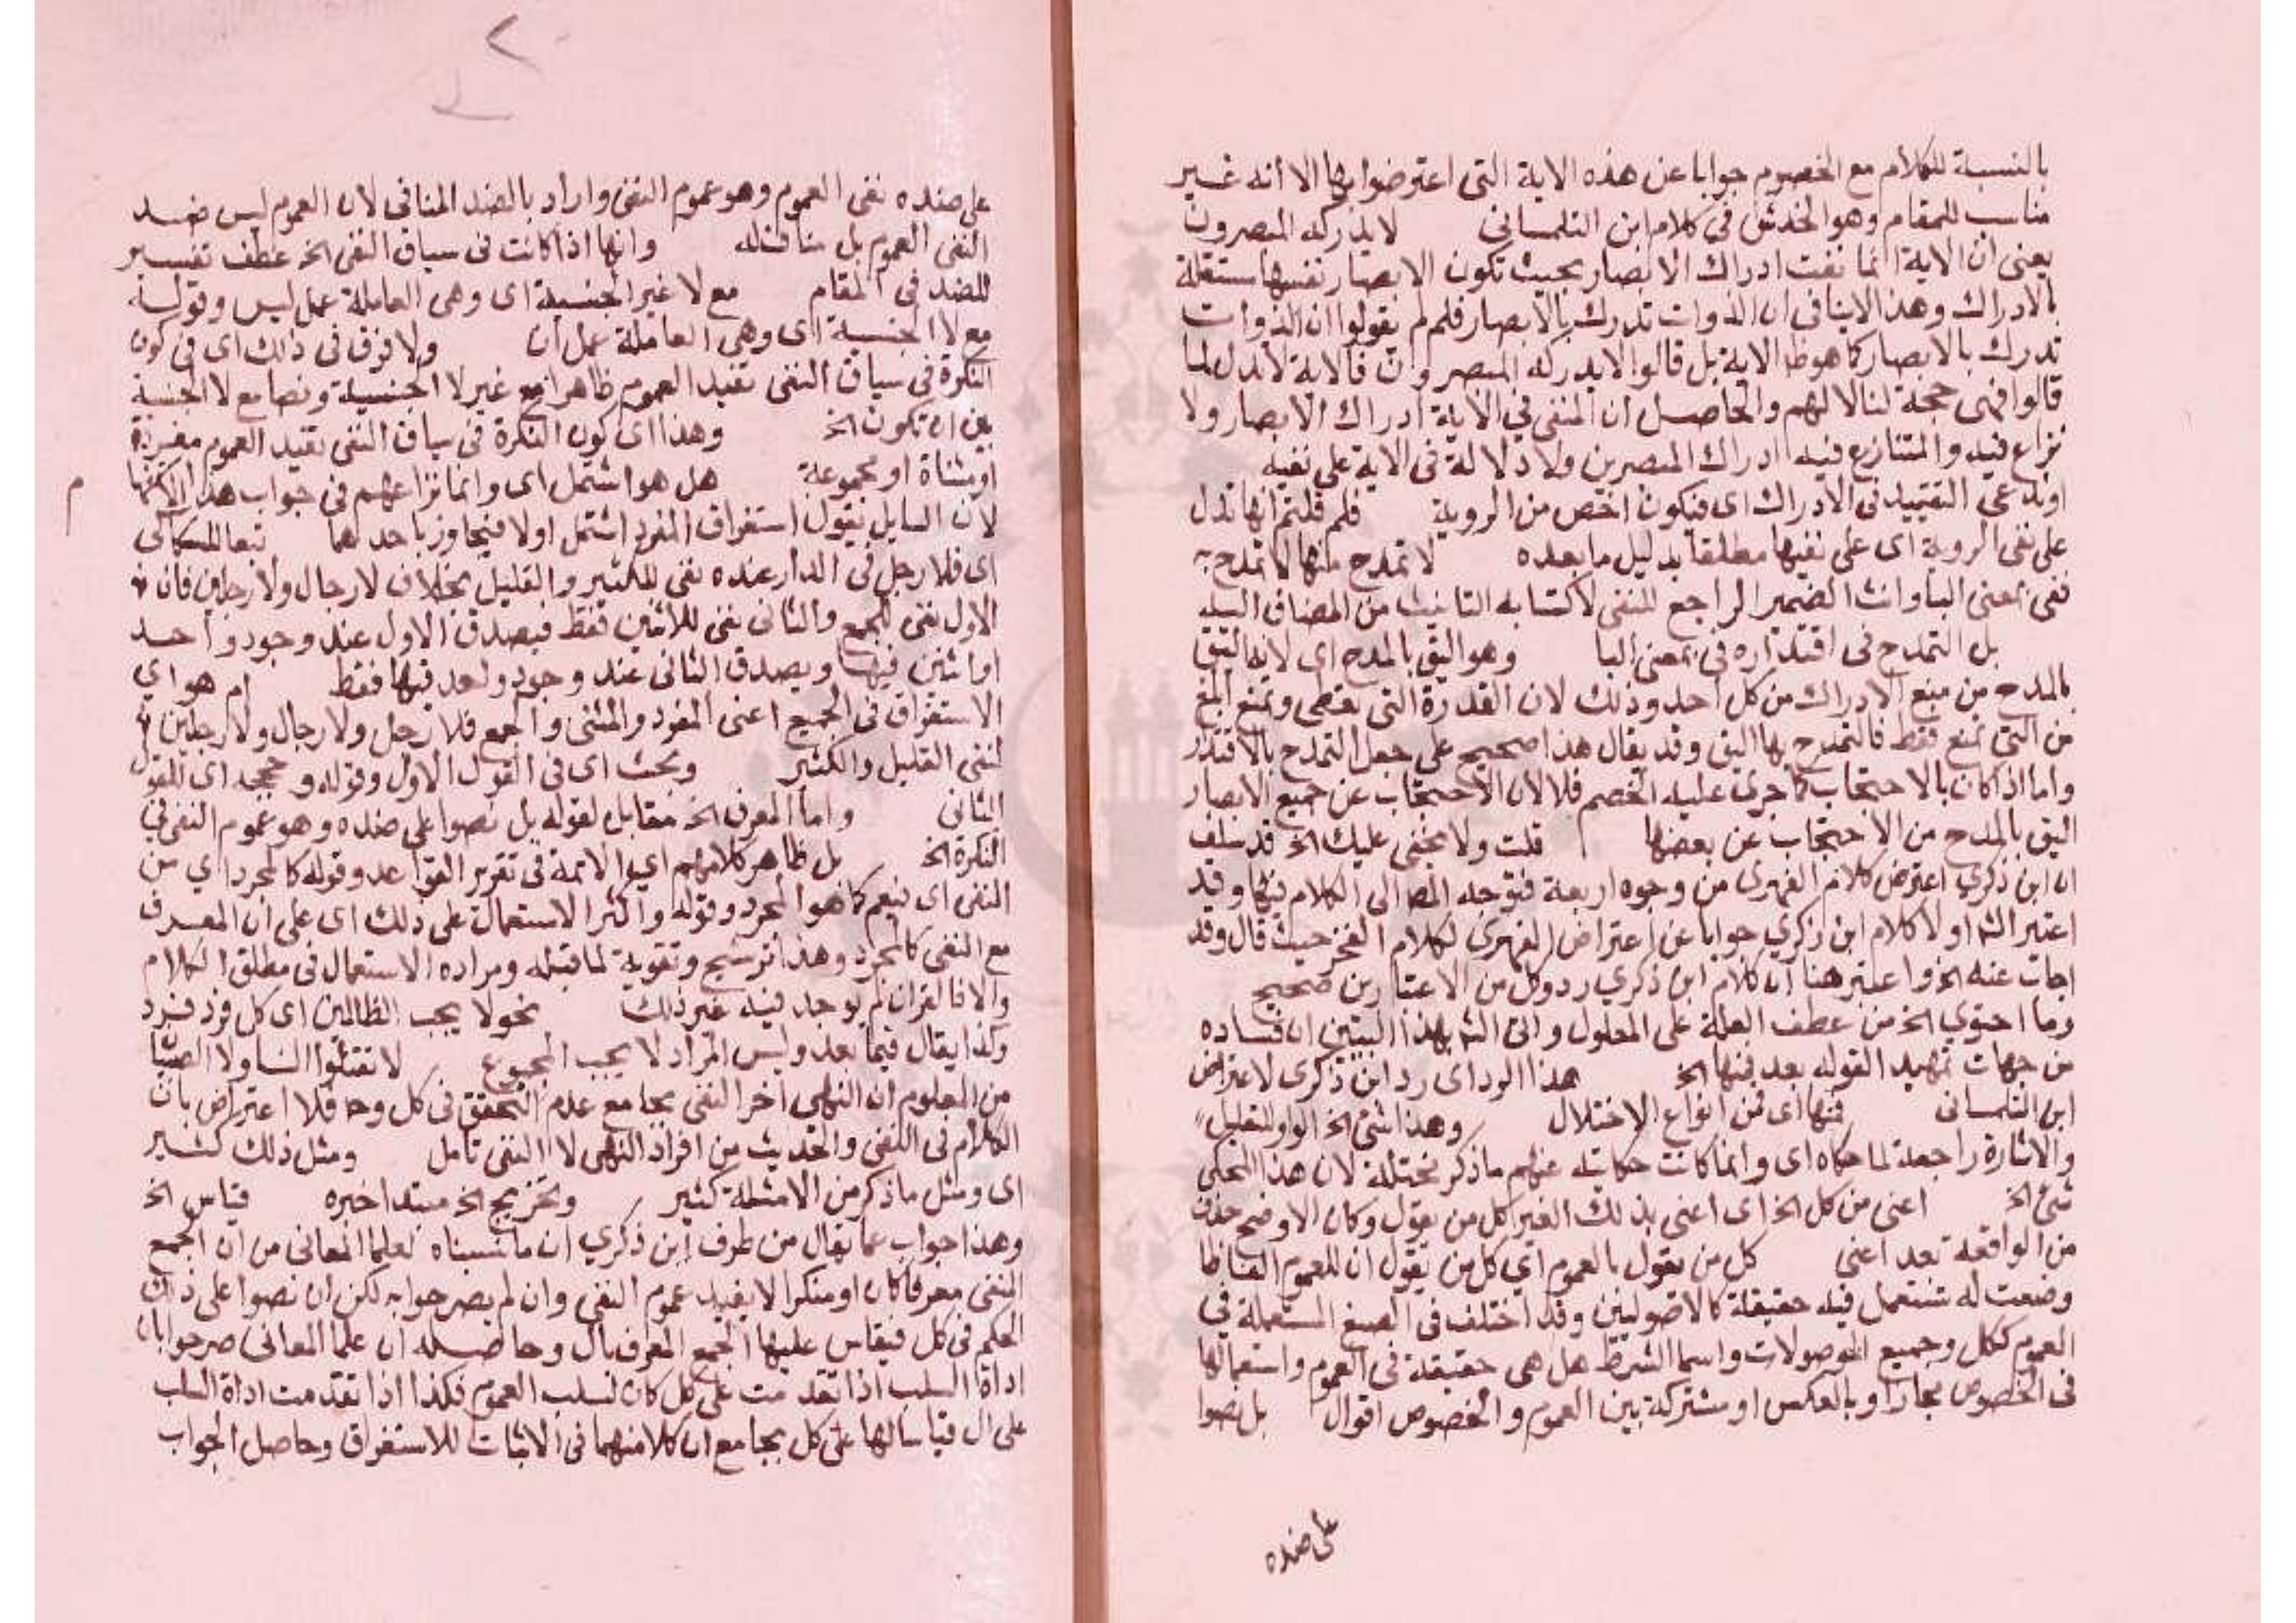 بالنسبة للكلام مع الخصوم جوابا عن هذه الاية التى اعترضوا بها الا أنه غير
مناسب للمقام وهو الخدش في كلام ابن التلمسانى لا يدركه المبصرون
يعنى ان الاية انما نفت ادراك الابصار بحيث تكون الابصار نفسها مستقلة
بالادراك وهذا لا ينافى ان الذوات تدرك بالابصار فلم لم يقولوا ان الذوات
تدرك بالابصار كما هو ظ الاية بل قالوا لا يدركه المبصرون فالاية لا تدل لما
قالوا فهى حجة لنا لا لهم والحاصل ان المنفى في الاية ادراك الابصار ولا
نزاع فيه والمتنازع فيه ادراك المبصرين ولا دلالة فى الاية على نفيه
او ندعى التقييد فى الادراك اى فيكون اخص من الروية فلم قلتم انها تدل
على نفى الروية اى على نفيها مطلقا بدليل ما بعده لا تمدح منها لا تمدح به
ففى بمعنى البا وانث الضمير الراجع للنفى لاكتسابه التانيث من المضاف اليه
بل التمدح فى اقتداره فى بمعنى البا وهو اليق بالمدح اى لانه اليق
بالمدح من منع الادراك من كل احد وذلك لان القدرة التى تعطى وتمنع ابلغ
من التى تمنع فقط فالتمدح بها اليق وقد يقال هذا صحيح على جعل التمدح بالاقتدار
واما اذا كان بالاحتجاب كما جرى عليه الخصم فلا لان الاحتجاب عن جميع الابصار
اليق بالمدح من الاحتجاب عن بعضها قلت ولا يخفى عليك الخ قد سلف
ان ابن ذكري اعترض كلام الفهرى من وجوه اربعة فتوجه المص الى الكلام فيها وقد
اعتبر الش اولا كلام ابن زكري جوابا عن اعتراض الفهرى لكلام الفخر حيث قال وقد
اجاب عنه الخ واعتبر هنا ان كلام ابن ذكري رد وكل من الاعتبارين صحيح
وما احتوي الخ من عطف العلة على المعلول واتى الش بهذا البيتين ان فساده
من جهات تمهيد القوله بعد فمنها الخ هذا الرد اى رد ابن ذكرى لاعتراض
ابن التلمسانى فمنها اى من انواع الاختلال وهذا شئ الخ الواو للتعليل
والاشارة راجعة لما حكاه اى وانما كانت حكايته عنهم ما ذكر مختلة لان هذا المحكى
شئ الخ اعنى من كل الخ اى اعنى بذلك الغير كل من يقول وكان الاوضح حذف
من الواقعة بعد اعنى كل من يقول بالعموم اي كل من يقول ان للعموم الفاظا
وضعت له تستعمل فيه حقيقة كالاصوليين وقد اختلف فى الصيغ المستعملة في
العموم ككل وجميع الموصولات واسما الشرط هل هى حقيقة فى العموم واستعمالها
فى الخصوص مجازا او بالعكس او مشتركة بين العموم والخصوص اقوال بل نصوا
على ضده
على ضده نفى العموم وهو عموم النفى واراد بالضد المنافى لان العموم ليس ضد
النفى العموم بل مناف له وانها اذا كانت فى سياق النفى الخ عطف تفسير
للضد فى المقام مع لا غير الجنسية اى وهى العاملة عمل ليس وقوله
مع لا الجنسية اى وهى العاملة عمل ان ولا فرق فى ذلك اى فى كون
النكرة فى سياق النفى تفيد العموم ظاهرا مع غير لا الجنسية ونصا مع لا الجنسية
بين ان تكون الخ وهذا اى كون النكرة فى سياق النفى تفيد العموم مفردة
او مثناة او مجموعة هل هو اشتمل اى وانما نزاعهم فى جواب هذا الاستفهام
لان السايل يقول استغراق المفرد اشتمل اولا فيجاوز باحدهما تبعا للسكاكى
اى فلا رجل فى الدار عنده نفى للكثير والقليل بخلاف لا رجال ولا رجلين فان
الاول نفى للجمع والثانى نفى للاثنين فقط فيصدق الاول عند وجود واحد
او اثنين فيها ويصدق الثانى عند وجود واحد فيها فقط ام هو اي
الاستغراق فى الجميع اعنى المفرد والمثنى والجمع فلا رجل ولا رجال ولا رجلين
لنفى القليل والكثير وبحث اى فى القول الاول وقوله وحججه اى للقول
الثانى واما المعرف الخ مقابل لقوله بل نصوا على ضده وهو عموم النفى في
النكرة الخ بل ظاهر كلامهم اي الائمة فى تقرير القواعد وقوله كالمجرد اي من
النفى اى فيعم كما هو المجرد وقوله واكثر الاستعمال على ذلك اى على ان المعرف
مع النفى كالمجرد وهذا ترشيح وتقوية لما قبله ومراده الاستعمال فى مطلق الكلام
والا فالقران لم يوجد فيه غير ذلك نحو لا يحب الظالمين اى كل فرد فرد
وكذا يقال فيما بعد وليس المراد لا يحب المجموع لا تقتلوا النسا ولا الصبيا
من المعلوم ان النهى اخر النفى بجامع عدم التحقق فى كل وح فلا اعتراض بان
الكلام فى النفى والحديث من افراد النهى لا النفى تامل ومثل ذلك كثير
اى ومثل ما ذكر من الامثلة كثير وتخريج الخ مبتدا خبره قياس الخ
وهذا جواب عما يقال من طرف ابن ذكري ان ما نسبناه لعلما المعانى من ان الجمع
المنفى معرفا كان او منكرا لا يفيد عموم النفى وان لم يصرحوا به لكن ان نصوا على ذلك
الحكم فى كل فيقاس عليها الجمع المعرف بال وحاصله ان علما المعانى صرحوا بان
اداة السلب اذا تقدمت على كل كان لسلب العموم فكذا اذا تقدمت اداة السلب
على ال قياسا لها على كل بجامع ان كلا منهما فى الاثبات للاستغراق وحاصل الجواب